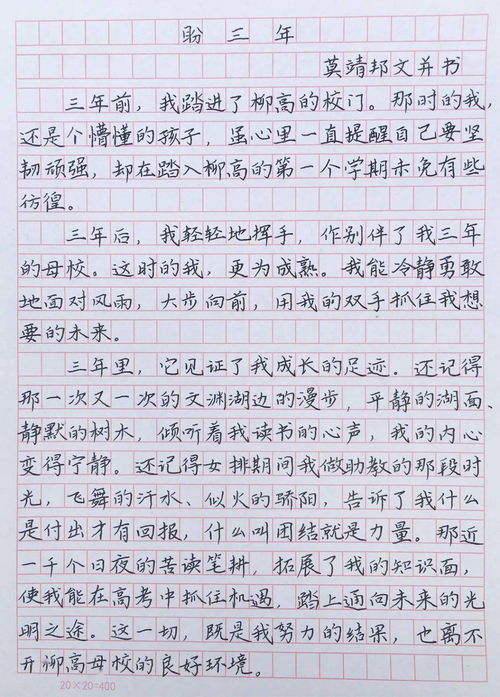 盼三年
莫靖邦文并书
三年前，我踏进了柳高的校门。那时的我，
还是个懵懂的孩子，虽心里一直提醒自己要坚
韧顽强，却在踏入柳高的第一个学期未免有些
彷徨。
三年后，我轻轻地挥手，作别伴了我三年
的母校。这时的我，更为成熟。我能冷静勇敢
地面对风雨，大步向前，用我的双手抓住我想
要的未来。
三年里，它见证了我成长的足迹。还记得
那一次又一次的文渊湖边的漫步，平静的湖面、
静默的树木，倾听着我读书的心声，我的内心
变得宁静。还记得女排期间我做助教的那段时
光，飞舞的汗水、似火的骄阳，告诉了我什么
是付出才有回报，什么叫团结就是力量。那近
一千个日夜的苦读笔耕，拓展了我的知识面，
使我能在高考中抓住机遇，踏上通向未来的光
明之途。这一切，既是我努力的结果，也离不
开柳高母校的良好环境。
20×20=400